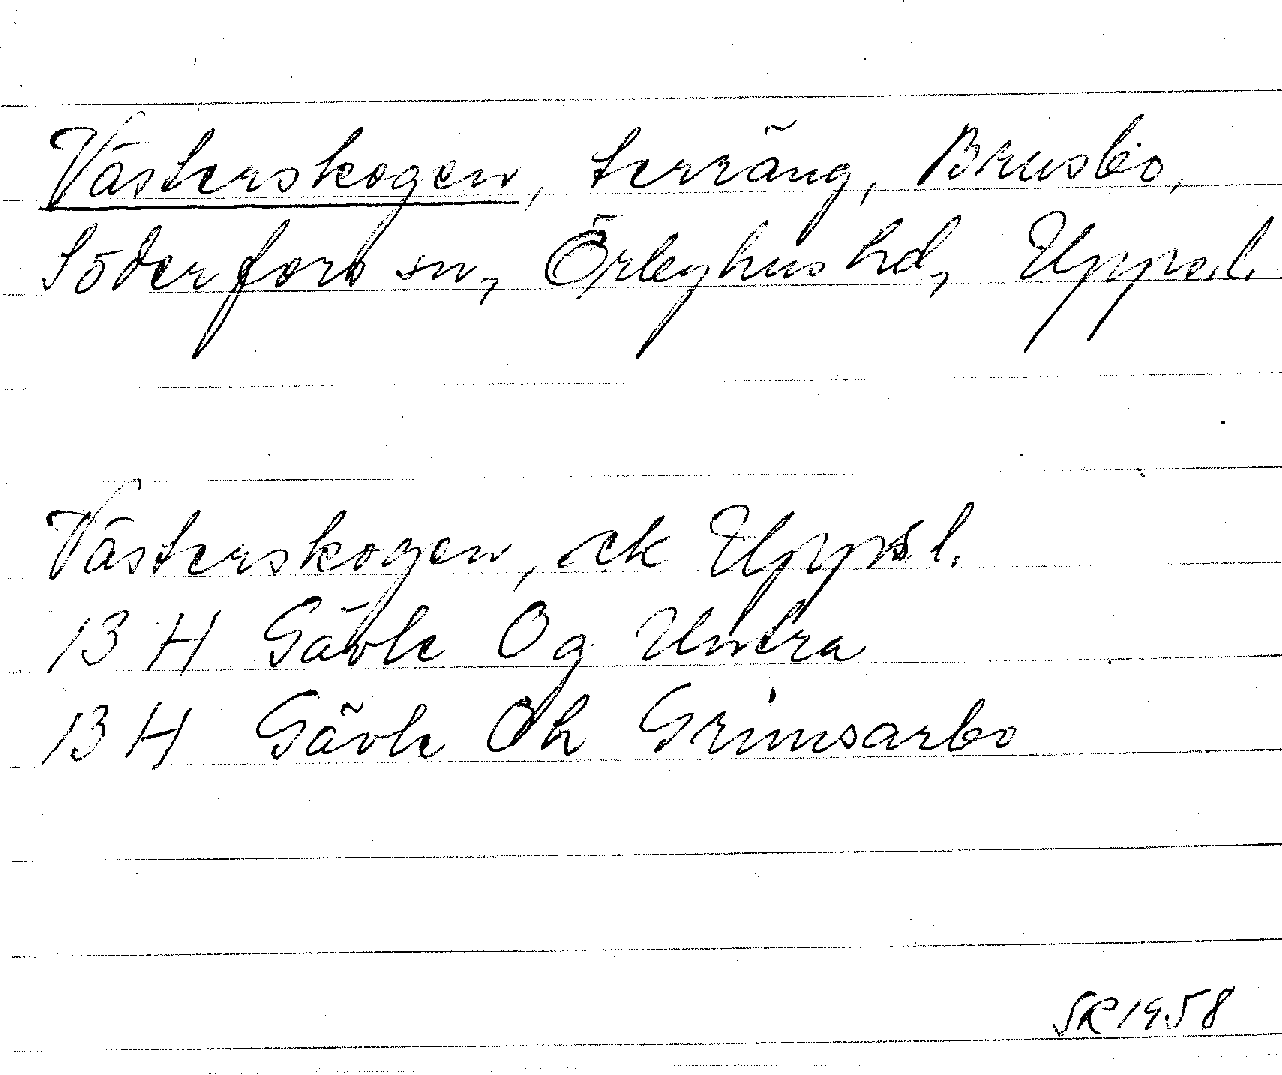 Västerskogen, terräng, Brusbo,
Söderfors sn, Örbyhus hd, Uppsl.
Västerskogen, ek Uppsl.
13 H Gävle Og Untra
13 H Gävle Oh Grimsarbo
SR 1958